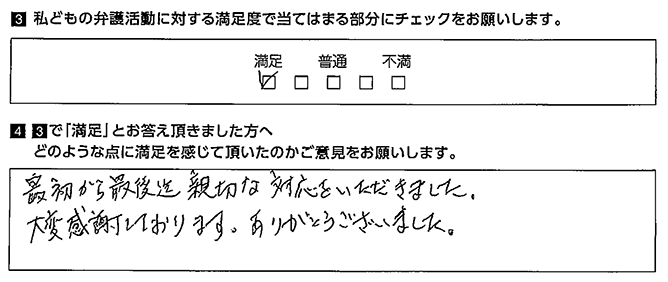 3 私どもの弁護活動に対する満足度で当てはまる部分にチェックをお願いします。
満足 普通 不満
☑ □ □ □ □
4 3で「満足」とお答え頂きました方へ
どのような点に満足を感じて頂いたのかご意見をお願いします。
最初から最後迄親切な対応をいただきました。
大変感謝しております。ありがとうございました。